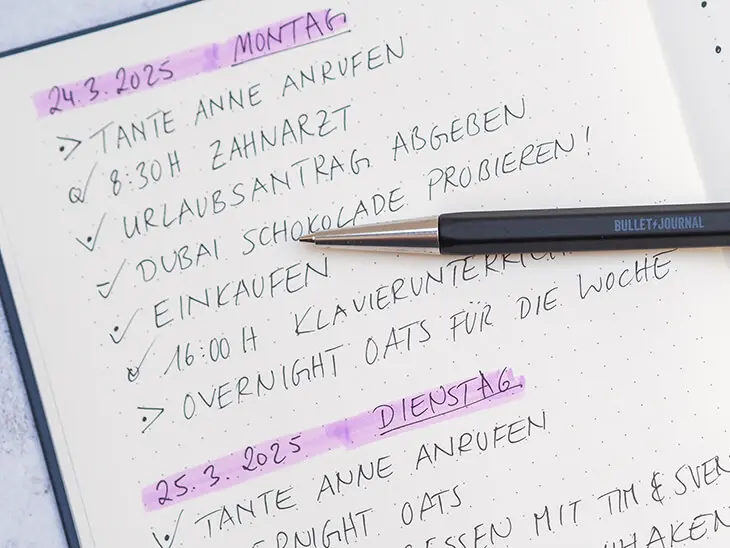 24.3.2025 MONTAG
> TANTE ANNE ANRUFEN
✓ 8:30H ZAHNARZT
✓ URLAUBSANTRAG ABGEBEN
✓ DUBAI SCHOKOLADE PROBIEREN!
✓ EINKAUFEN
✓ 16:00H KLAVIERUNTERRICH
> OVERNIGHT OATS FÜR DIE WOCHE
BULLET JOURNAL
25.3.2025 DIENSTAG
✓ TANTE ANNE ANRUFEN
RNIGHT OATS
ESSEN MIT TIM & SVEN